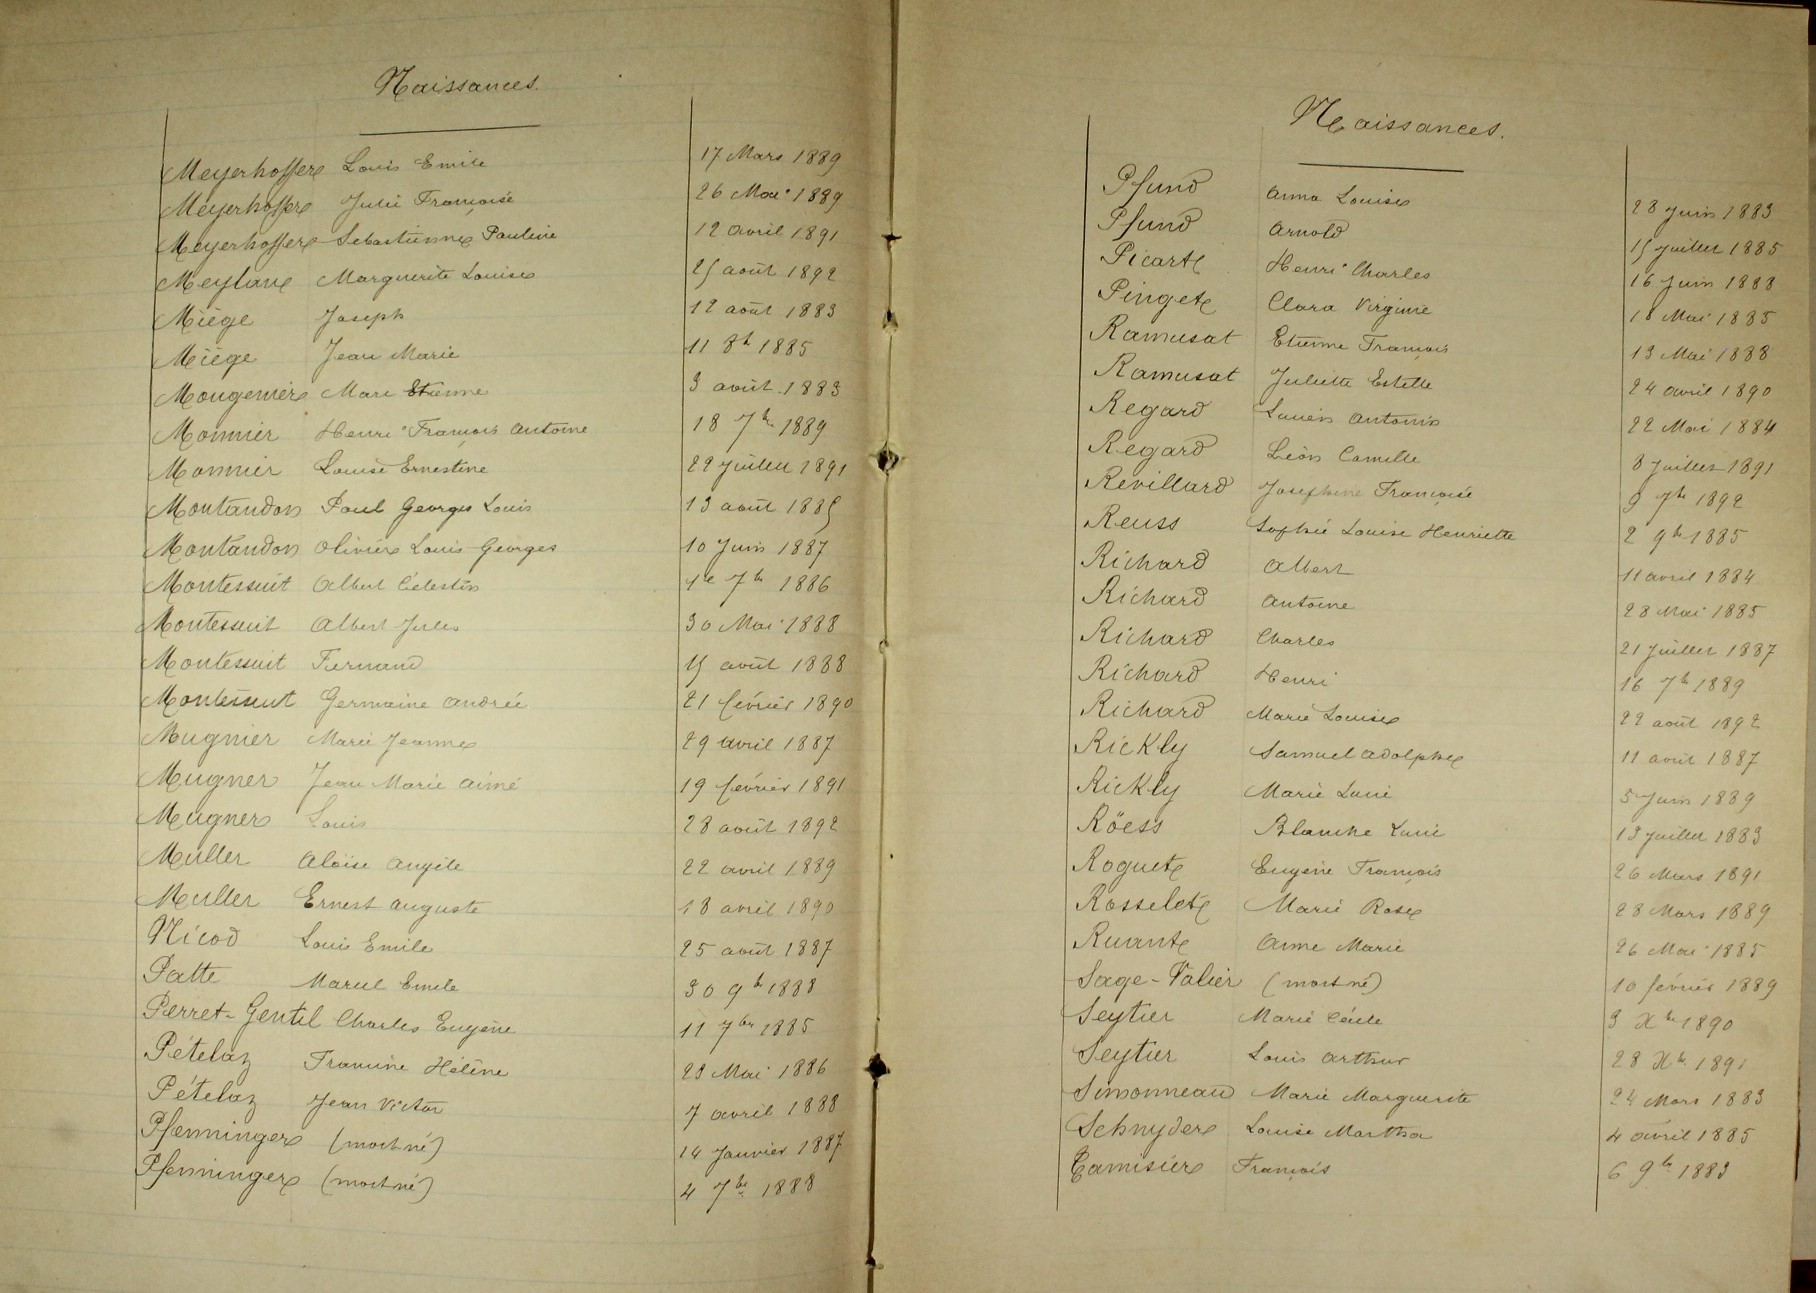 Naissances.
Meyerhoffer Louis Emile 17 Mars 1889
Meyerhoffer Julie Françoise 26 Mai 1889
Meyerhoffer Sebastienne Pauline 12 avril 1891
Meylan Marguerite Louise 25 août 1892
Miège Joseph 12 août 1883
Miège Jean Marie 11 8b 1885
Mougenier Marc Etienne 3 août 1883
Monnier Henri François Antoine 18 7b 1889
Monnier Louise Ernestine 22 Juillet 1891
Montandon Paul Georges Louis 13 août 1885
Montandon Olivier Louis Georges 10 Juin 1887
Montessuit Albert Célestin 1e 7b 1886
Montessuit Albert Jules 30 Mai 1888
Montessuit Fernand 15 août 1888
Montessuit Germaine Andrée 21 février 1890
Mugnier Marie Jeanne 29 avril 1887
Mugner Jean Marie Aimé 19 février 1891
Mugner Louis 28 août 1892
Muller Aloïse Angèle 22 avril 1889
Muller Ernest Auguste 18 avril 1890
Nicod Louis Emile 25 août 1887
Patte Marcel Emile 30 9b 1888
Perret-Gentil Charles Eugène 11 7br 1885
Pételaz Francine Hélène 23 Mai 1886
Pételaz Jean Victor 7 avril 1888
Pfenninger (mort né) 14 Janvier 1887
Pfenninger (mort né) 4 7br 1888
Naissances.
Pfund Anna Louise 28 Juin 1883
Pfund Arnold 15 Juillet 1885
Picart Henri Charles 16 Juin 1888
Pinget Clara Virginie 18 Mai 1885
Ramusat Etienne François 13 Mai 1888
Ramusat Juliette Estelle 24 avril 1890
Regard Lucien Antonin 22 Mai 1884
Regard Léon Camille 8 Juillet 1891
Revillard Josephine Françoise 9 7b 1892
Reuss Sophie Louise Henriette 2 9b 1885
Richard Albert 11 avril 1884
Richard Antoine 28 Mai 1885
Richard Charles 21 Juillet 1887
Richard Henri 16 7b 1889
Richard Marie Louise 22 août 1892
Rickly Samuel Adolphe 11 avril 1887
Rickly Marie Lucie 5 Juin 1889
Röess Blanche Lucie 13 Juillet 1883
Roguet Eugène François 26 Mars 1891
Rosselet Marie Rose 28 Mars 1889
Ruant Anne Marie 26 Mai 1885
Sage-Valier (mort né) 10 février 1889
Seytier Marie Cécile 3 Xb 1890
Seytier Louis Arthur 28 Xb 1891
Simonneau Marie Marguerite 24 Mars 1883
Schnyder Louise Martha 4 avril 1885
Tamisier François 6 9b 1883